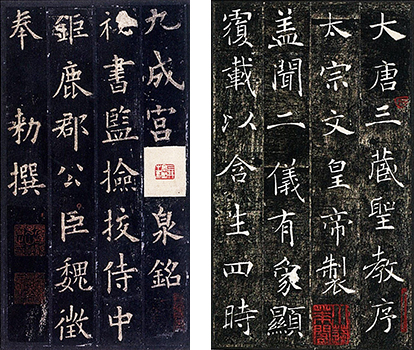 九成宮 泉銘
秘書監撿挍侍中
鉅鹿郡公臣魏徵
奉 勑撰
大唐三藏聖教序
太宗文皇帝製
盖聞二儀有象顯
覆載以含生四時